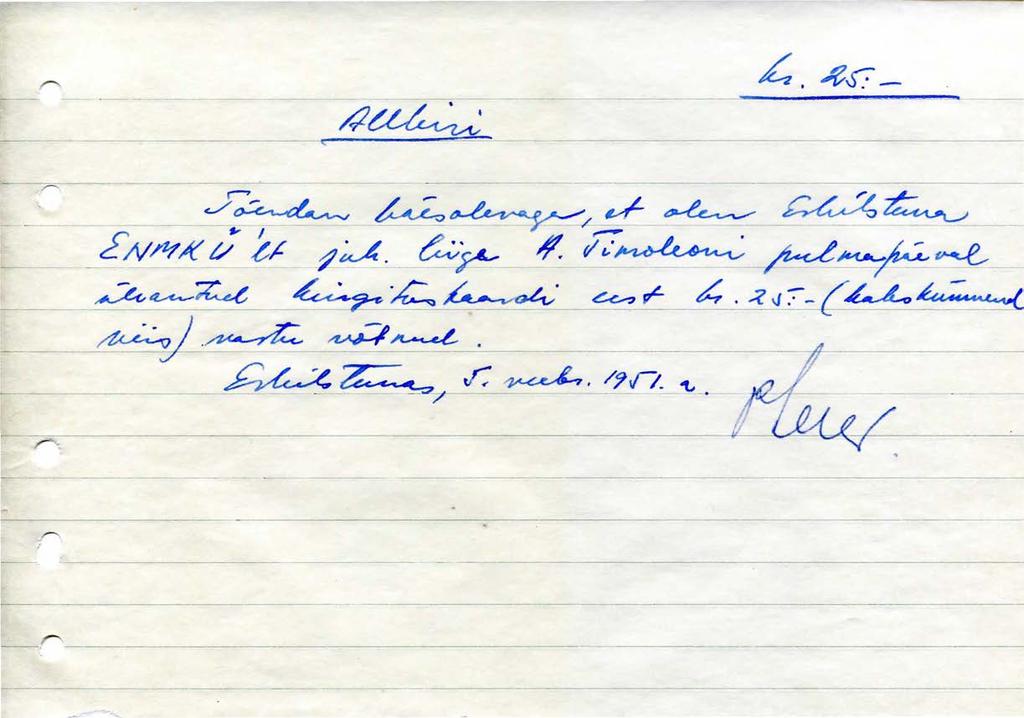 kr. 25:-
Allkiri
Tõendan käesolevaga, et olen Eskilstuna
ENMKÜ'lt juh. liige A. Timoleoni pulmapäeval
üleantud kingituskaardi eest kr. 25:- (kakskümmend
viis) vastu võtnud.
Eskilstunas, 5. veebr. 1951. a.